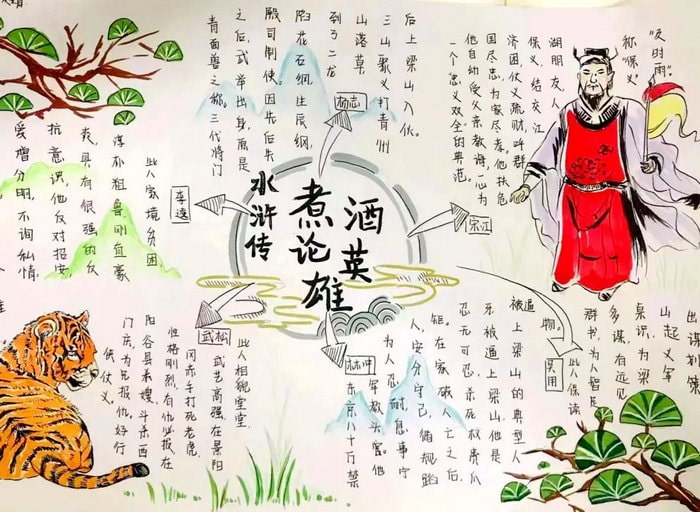 水浒传
煮酒论英雄
杨志
青面兽之称。三代将门
之后,武举出身,原是
殿司制使。因先后失
陷花石纲,生辰纲,
到了二龙
山落草
三山聚义打青州
后上梁山入伙。
宋江
一个“忠义双全”的典范。
他自幼受父亲教诲,心为
国尽忠为家尽孝。他扶危
济困伏义疏财,呼群
保义、结交江
湖朋友人
称“保义”
“及时雨”。
李逵
此人家境贫困
淳朴粗鲁刚直豪
爽,具有很强的反
抗意识,他反对招安,
爱憎分明,不徇私情
武松
此人相貌堂堂
武艺高强,在景阳
冈赤手打死老虎,
性格刚烈,有仇必报,在
阳谷县弟嫂斗杀西
门庆,为兄报仇,好行
侠仗义。
林冲
东京八十万禁
军教头官。他
为人忍耐,息事宁
人,安分守己,循规蹈
矩。在家破人亡之后,
忍无可忍,杀死敌贵爪
牙被逼上梁山,他是
被逼上梁山的典型人
物。
吴用
此人饱读
群书,为人智
多谋,有远见
卓识,为梁
山起义军
出谋划